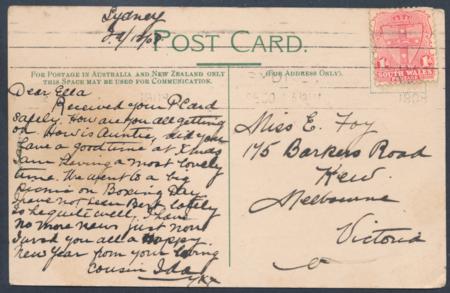 Sydney
POST CARD.
FOR POSTAGE IN AUSTRALIA AND NEW ZEALAND ONLY
THIS SPACE MAY BE USED FOR COMMUNICATION.
(FOR ADDRESS ONLY).
Dear Ella
Received your P. Card
safely. How are you all getting
on How is Auntie, did you
have a good time at Xmas
I am having a most lovely
time. We went to a big
picnic on Boxing Day
I have not seen Bert lately
so he quite well. I have
no more news just now
I wish you all a Happy
New Year from your loving
cousin Ida
Miss E. Foy
175 Barkers Road
Kew
Melbourne
Victoria
SOUTH WALES
1908